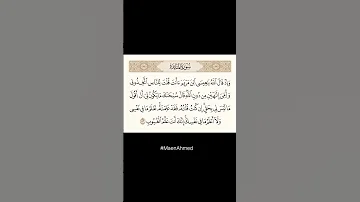 سُورَةُ المَائـِدَة
وَإِذْ قَالَ ٱللَّهُ يَٰعِيسَى ٱبْنَ مَرْيَمَ ءَأَنتَ قُلْتَ لِلنَّاسِ ٱتَّخِذُونِى
وَأُمِّىَ إِلَٰهَيْنِ مِن دُونِ ٱللَّهِ قَالَ سُبْحَٰنَكَ مَا يَكُونُ لِىٓ أَنْ أَقُولَ
مَا لَيْسَ لِى بِحَقٍّ إِن كُنتُ قُلْتُهُۥ فَقَدْ عَلِمْتَهُۥ تَعْلَمُ مَا فِى نَفْسِى
وَلَآ أَعْلَمُ مَا فِى نَفْسِكَ إِنَّكَ أَنتَ عَلَّٰمُ ٱلْغُيُوبِ
#MaenAhmed